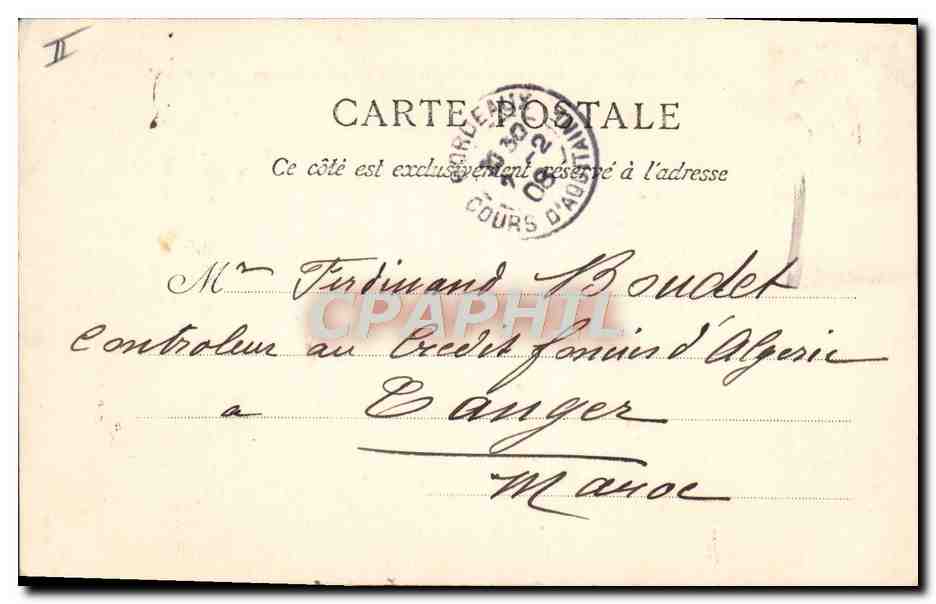 II
CARTE POSTALE
Ce côté est exclusivement réservé à l'adresse
BORDEAUX
COURS D'AQUITAINE
30
2 -2
08
Mr Ferdinand Boudet
Controleur au Crédit foncier d'Algérie
a Tanger
Maroc
CPAPHIL